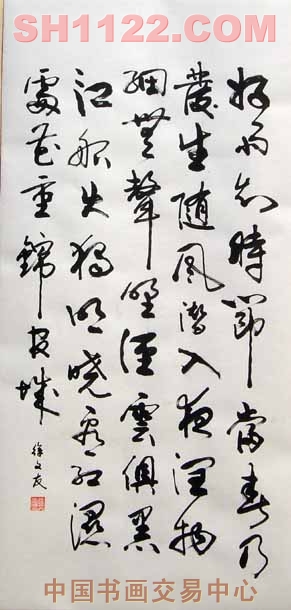 SH1122.COM
好雨知時節當春乃
發生随風潛入夜潤物
細無聲野徑雲俱黑
江船火獨明曉看紅濕
處花重錦官城
徐文友
中国书画交易中心